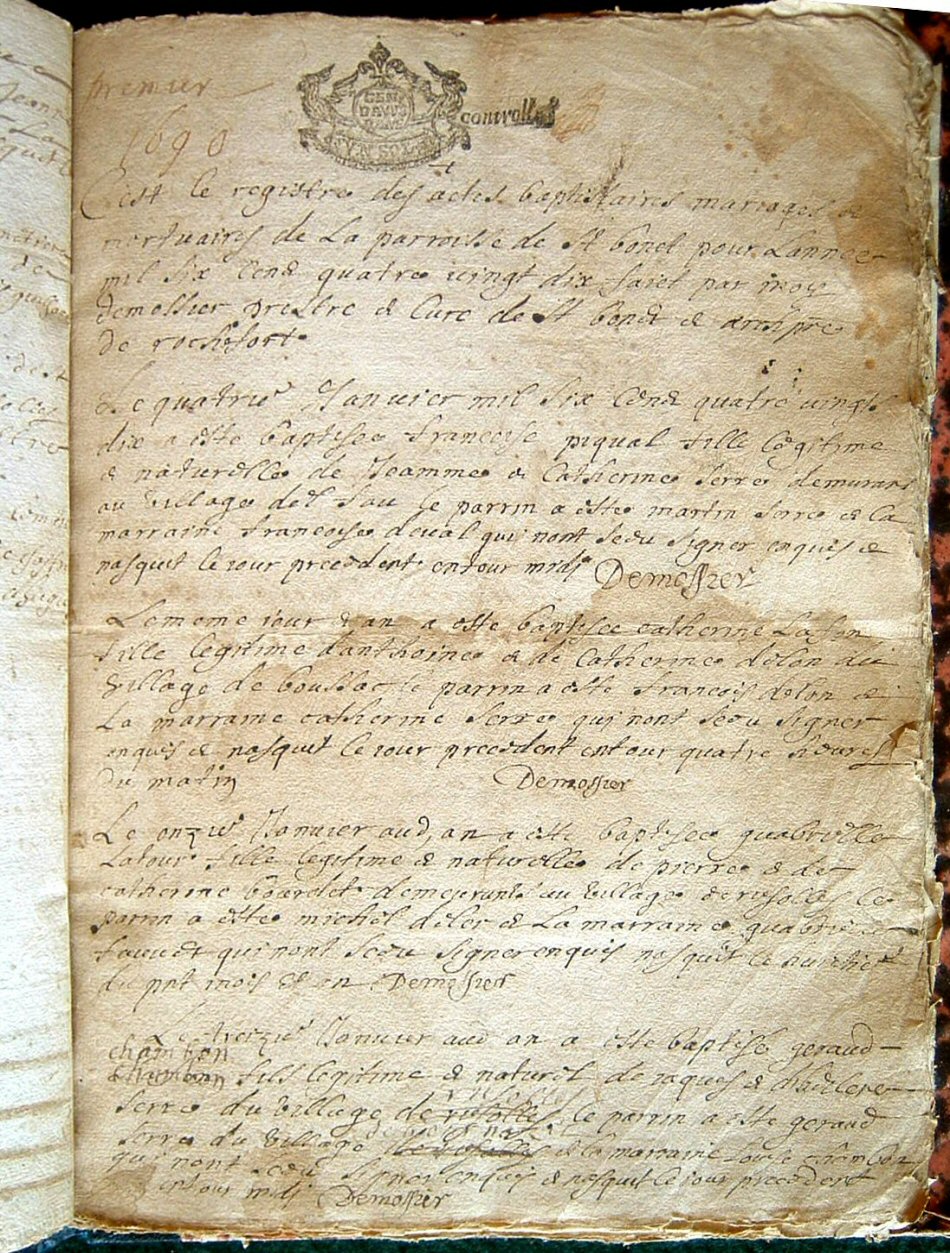 premier
1690
GEN
DAUV
YN SOL
controllé
Cest le registre des actes baptistaires mariages &
mortuaires de La parroisse de St bonet pour Lannee
mil six Cend quatre vingt dix faict par moy
demossier prestre & Cure de St bonet & archipre
De rochefort
Le quatrie Januier mil six Cend quatre vingt
dix a esté baptisee francoise piqual fille legitime
& naturelle de Jeamme & Catherine serre demurant
au village del fau le parrin a este martin serre & La
marraine francoise doual qui nont sceu signer enquis &
nasquit le iour precedent entour midj Demossier
Le meme iour & an a este baptisee catherine Lafon
fille legitime danthoine & de Catherine delon du
village de boussac le parrin a este francois delon &
La marraine catherine serre qui nont sceu signer
enquis & nasquit le iour precedent entour quatre heures
Du matin Demossier
Le onzie Januier aud, an a esté baptisee quabrielle
Latour fille legitime & naturelle de pierre & de
catherine bourdet demeurants au village de rusolles le
parrin a este michel delor & La marraine quabrielle
fauuet qui nont sceu signer enquis nasquit le
du pnt mois & an Demossier
Le treizie Januier aud an a este baptise geraud
chambon
fils legitime & naturel de iaques & dhelene
serre du village de le parrin a este geraud
serre du village & la marraine chambon
qui nont sceu signer enquis & nasquit le iour precedent
entour midj Demossier